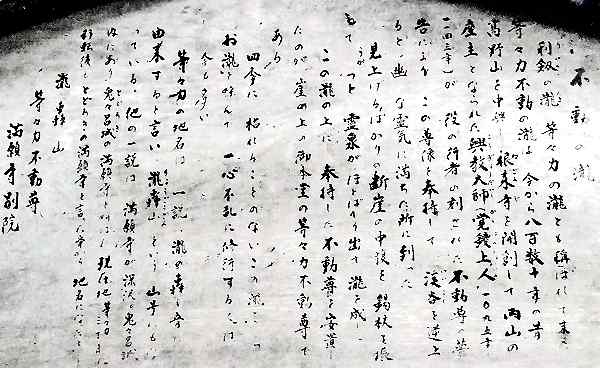 不動の滝
利剱の瀧 等々力の瀧とも稱ばれて来
等々力不動の瀧は 今から八百数十年の昔
高野山を中興し 根来寺を開創して両山の
座主となられた興教大師覚鑁上人
一四三年)が 役の行者の刻まれた 不動尊の夢
告により この尊像を奉持して 渓谷を遡上
ると 幽 な霊気に満ちた所に到った
見上げるばかりの断崖の中復を 錫杖を振
もて うがつと 霊泉がほとばしり出て 瀧と成
この瀧の上に 奉持した不動尊を安置し
たのが 崖の上の御本堂の等々力不動尊で
ある
四季に 枯れることのないこの瀧に
お瀧と称んで 一心不乱に修行する人は
今も多い
等々力の地名は 一説 瀧の轟く音に
由来すると言い 瀧轟山という 山号にも
っている 他の一説は 満願寺が深沢の兎々呂城
内にあり 兎々呂城の満願寺と 現在地等々力
移転後も とどろきの満願寺と言た事が 地名になった
瀧轟山
等々力不動尊
満願寺別院